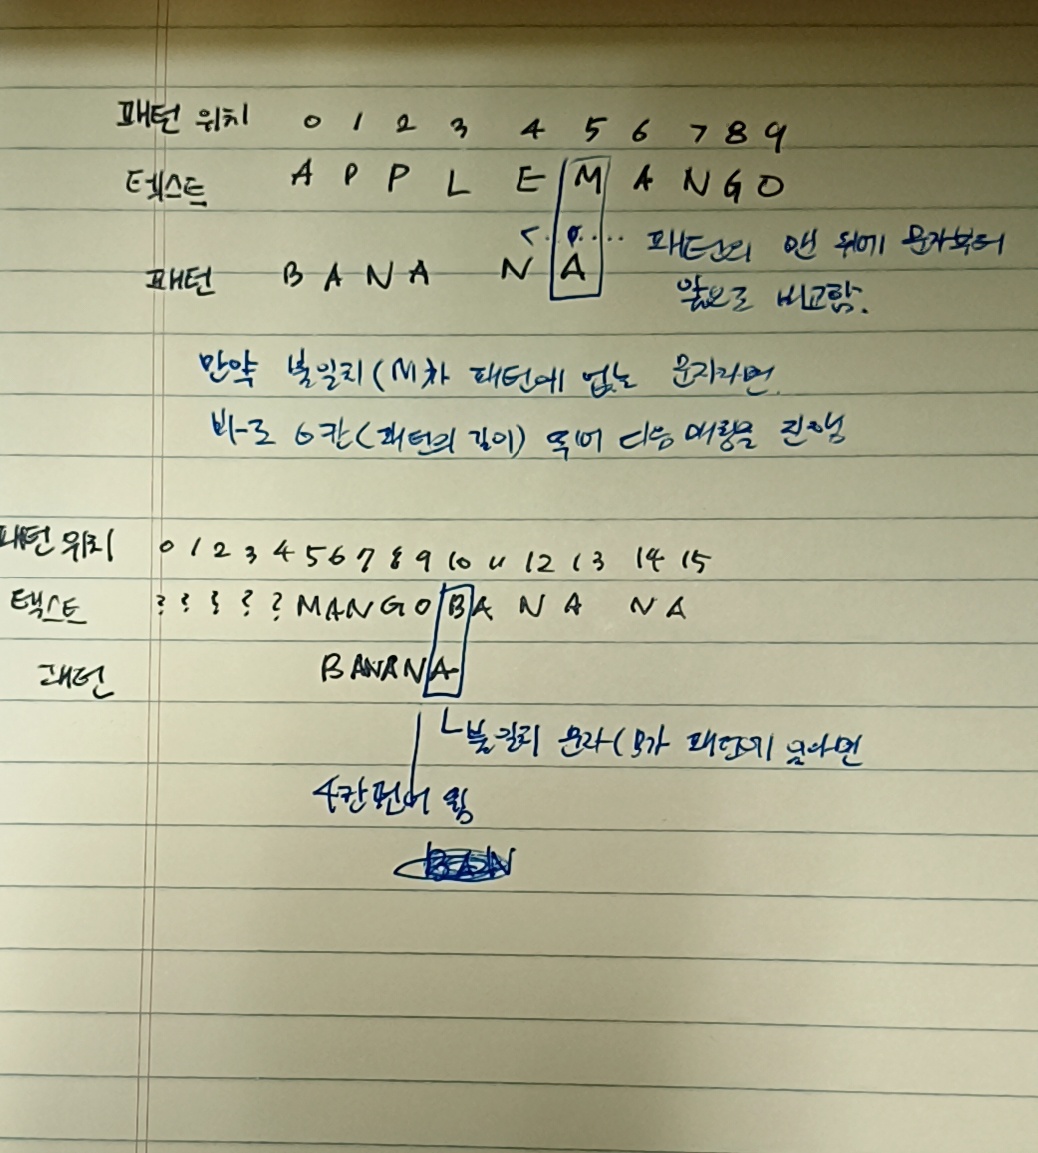 패턴 위치 0 1 2 3 4 5 6 7 8 9
텍스트 A P P L E M A N G O
패턴 B A N A N A
패턴의 맨 뒤에 문자부터
앞으로 비교함.
만약 불일치(M가 패턴에 없는 문자라면
바로 6칸(패턴의 길이) 뛰어 다음 매칭을 진행
패턴 위치 0 1 2 3 4 5 6 7 8 9 10 11 12 13 14 15
텍스트 ? ? ? ? ? M A N G O B A N A N A
패턴 B A N A N A
불일치 문자(B가 패턴에 있다면
4칸